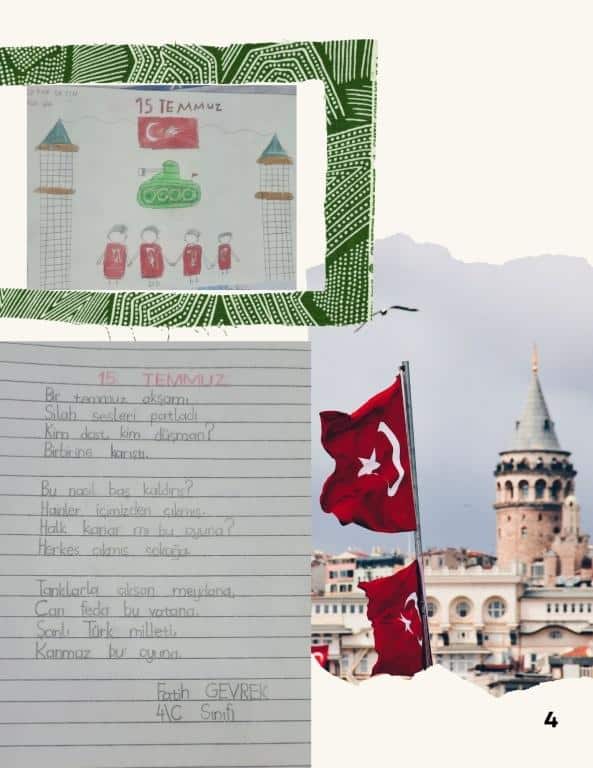 15 TEMMUZ
15 TEMMUZ
Bir temmuz akşamı
Silah sesleri patladı
Kim dost, kim düşman?
Birbirine karıştı.
Bu nasıl baş kaldırış?
Hainler içimizden çıkmış.
Halk kanar mı bu oyuna?
Herkes çıkmış sokağa.
Tanklarla çıksan meydana,
Can feda bu vatana.
Şanlı Türk milleti,
Kanmaz bu oyuna.
Fatih GEVREK
4\C Sınıfı
4